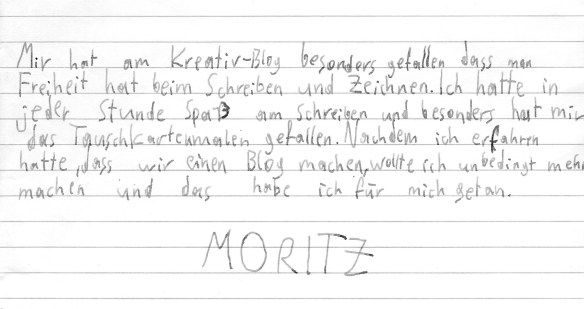 Mir hat am Kreativ-Blog besonders gefallen dass man
Freiheit hat beim Schreiben und Zeichnen. Ich hatte in
jeder Stunde Spaß am Schreiben und besonders hat mir
das Tauschkartenmalen gefallen. Nachdem ich erfahren
hatte, dass wir einen Blog machen, wollte ich unbedingt meh
machen und das habe ich für mich getan.
MORITZ